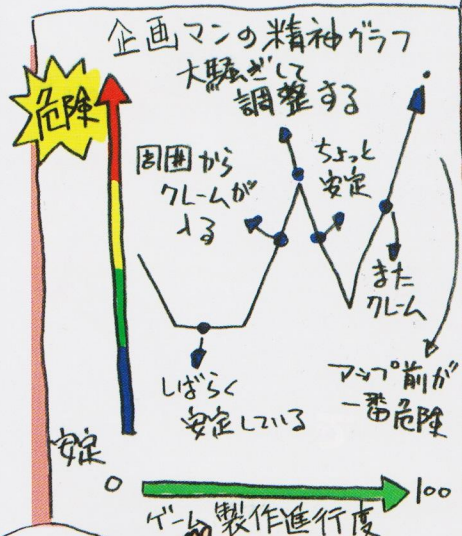 企画マンの精神グラフ
危険
大騒ぎして
調整する
周囲から
クレームが
入る
ちょっと
安定
また
クレーム
しばらく
安定している
アップ前が
一番危険
安定
0
100
ゲーム製作進行度